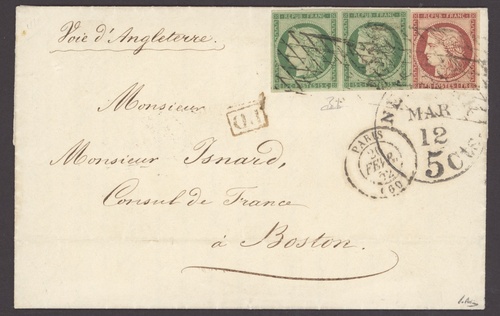 Voie d'Angleterre.
REPUB. FRANC. REPUB. FRANC. REPUB. FRANC.
Monsieur
P.D.
MAR
12
5 cts
PARIS
FEVR.
52
(60)
Monsieur Isnard,
Consul de France
à Boston.